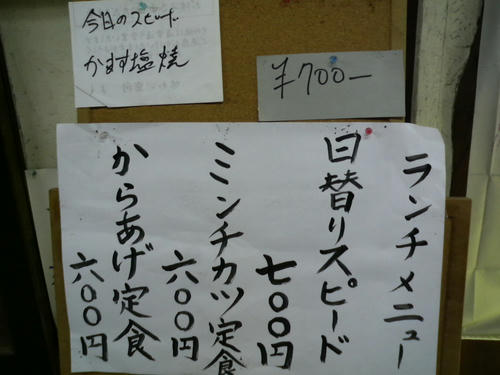 今日のスピード
かます塩焼
¥700-
ランチメニュー
日替りスピード
七〇〇円
ミンチカツ定食
六〇〇円
からあげ定食
六〇〇円